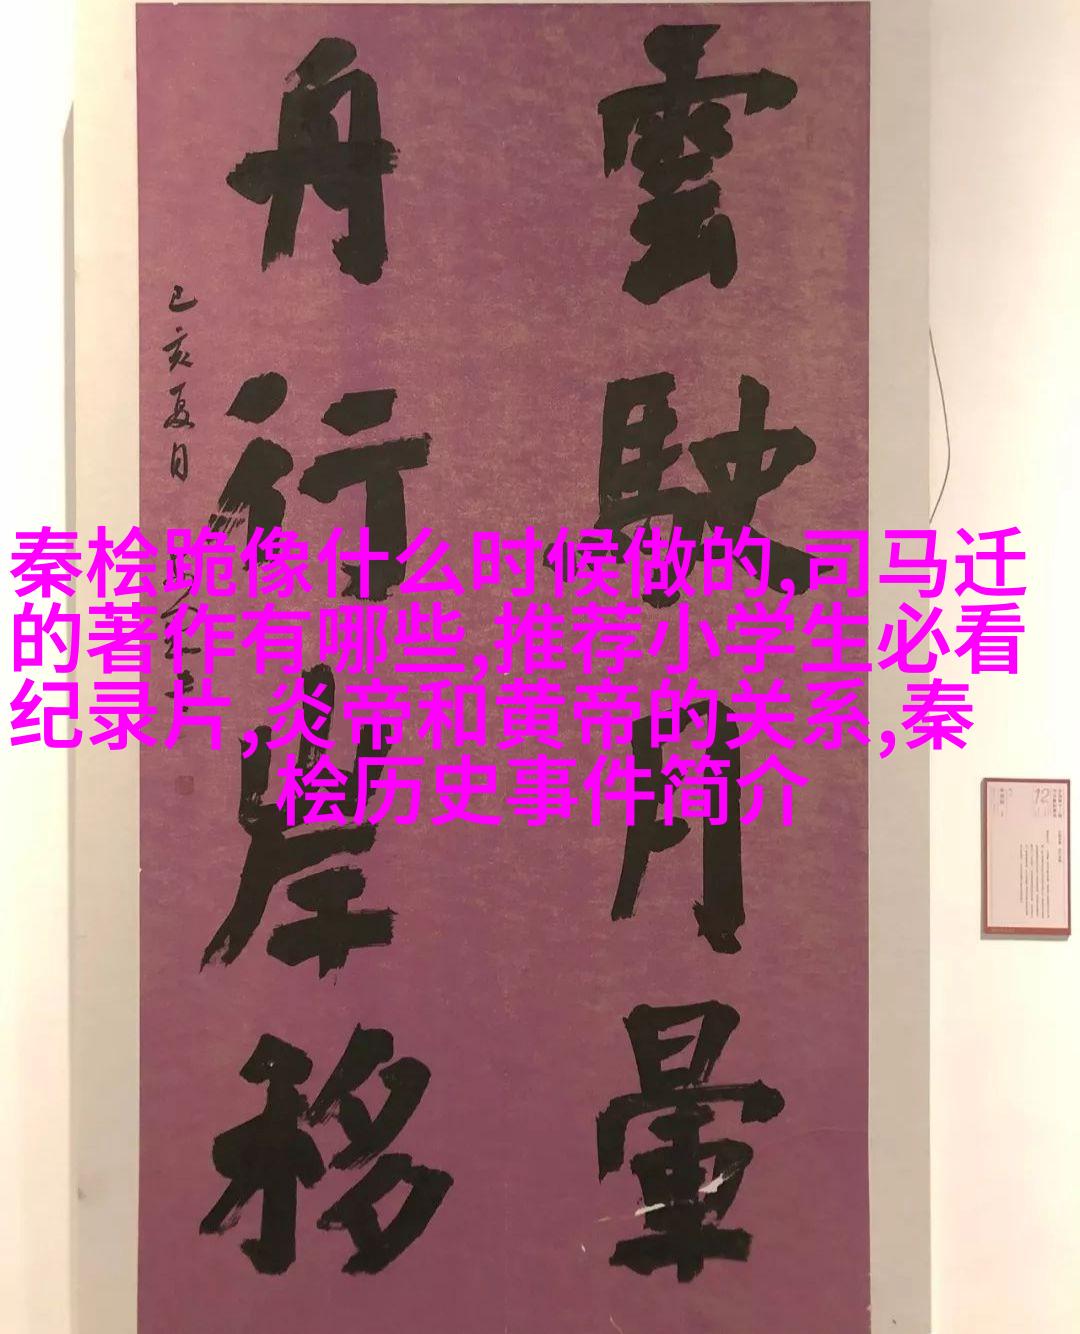 雲駛月暈
舟行岸移
己亥夏日
秦桧跪像什么时候做的,司马迁
的著作有哪些,推荐小学生必看
纪录片,炎帝和黄帝的关系,秦
桧历史事件简介
12